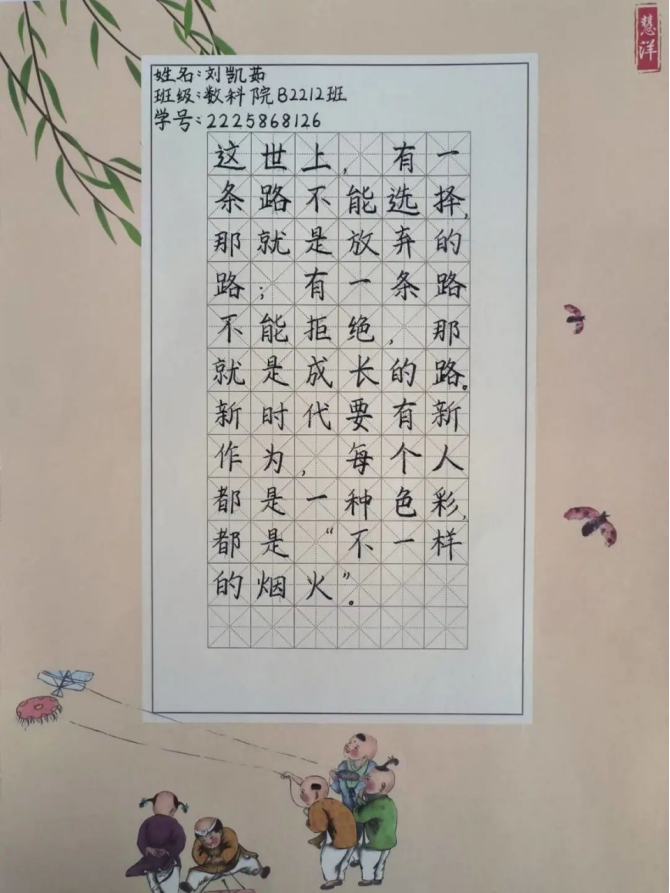 慧洋
姓名:刘凯茹
班级:数科院B2212班
学号:2225868126
这世上,有一
条路不能选择,
那就是放弃的
路;有一条路
不能拒绝,那
就是成长的路。
新时代要有新
作为,每个人
都是一种色彩,
都是“不一样
的烟火”。